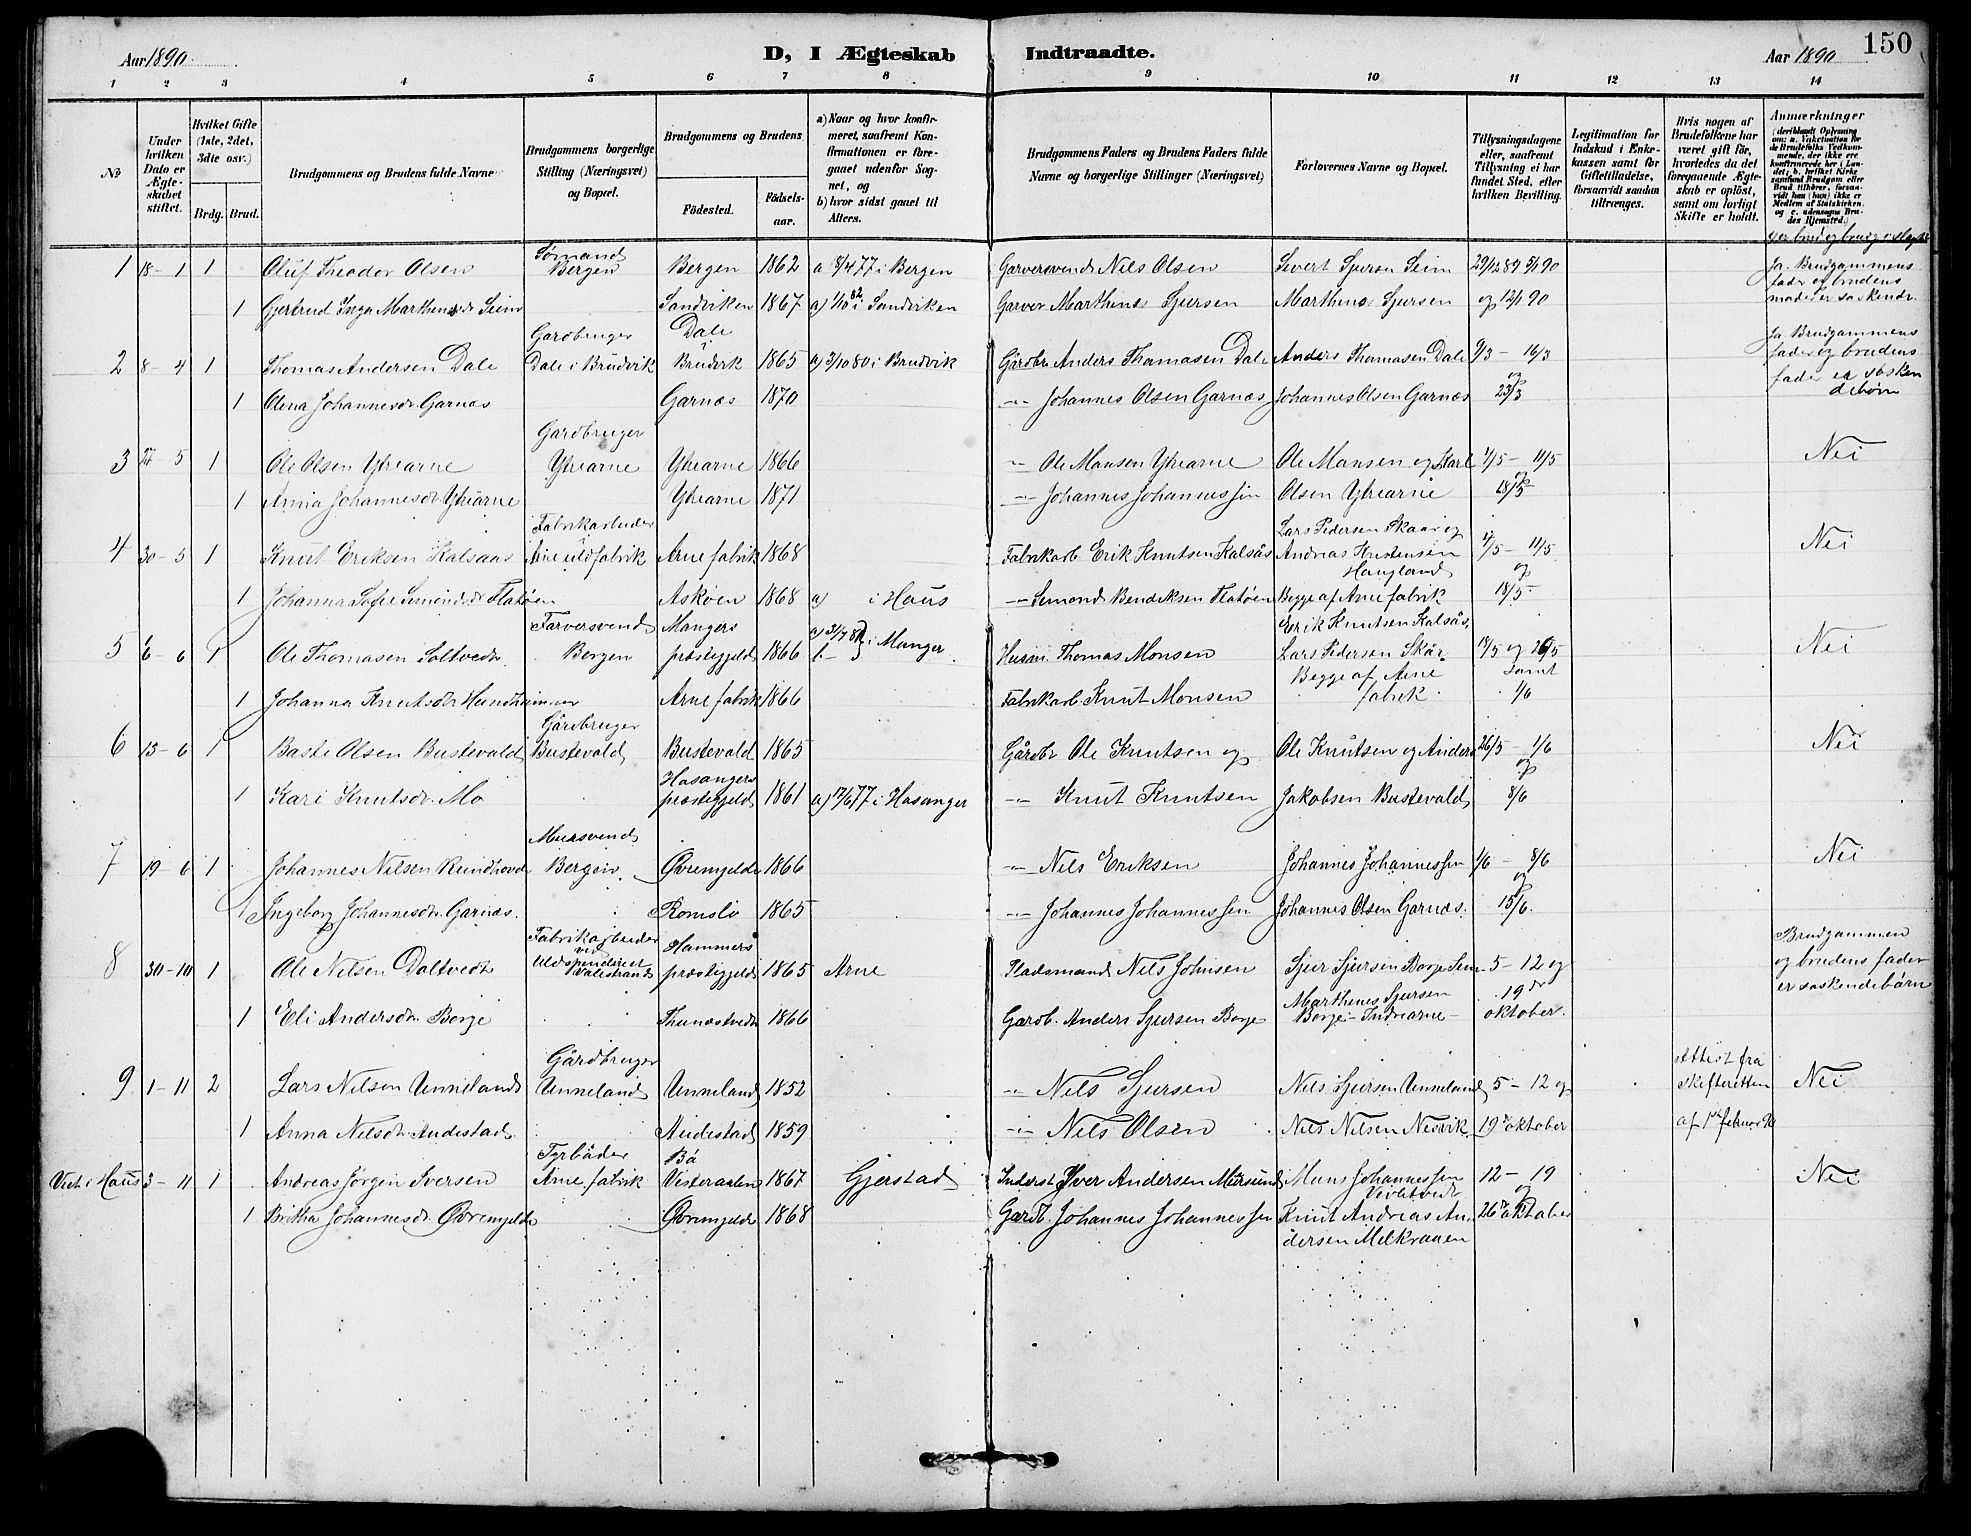 Aar 1890
D, I Ægteskab Indtraadte.
Aar 1890
150
1 2 3 4 5 6 7 8 9 10 11 12 13 14
No
Under hvilken Dato er Ægteskabet stiftet.
Hvilket Gifte (1ste, 2det, 3die osv.)
Brdg. Brud.
Brudgommens og Brudens fulde Navne
Brudgommens borgerlige Stilling (Næringsvei) og Bopæl.
Brudgommens og Brudens
Fødested.
Fødselsaar.
a) Naar og hvor konfirmeret, saafremt Konfirmationen er foregaaet udenfor Sognet, og
b) hvor sidst gaaet til Alters.
Brudgommens Faders og Brudens Faders fulde Navne og borgerlige Stillinger (Næringsvei)
Forlovernes Navne og Bopæl.
Tillysningsdagene eller, saafremt Tillysning ei har fundet Sted, efter hvilken Bevilling.
Legitimation for Indskud i Enkekassen samt for Giftetilladelse, forsaavidt saadan tiltrænges.
Hvis nogen af Brudefolkene har været gift før, hvorledes da det foregaaende Ægteskab er opløst, samt om lovligt Skifte er holdt.
Anmærkninger
1 18-1 1 Oluf Theodor Olsen Sømand Bergen Bergen 1862 a 8/4 77 i Bergen Garversvend Nils Olsen Sivert Sjursen Seim 29/12 89 5/1 90 Ja. Brudgommens fader og brudens moder er søskende.
1 Gjertrud Inga Marthensdr Seim Sandviken 1867 a) 1/10 82 i Sandviken Garver Marthens Sjursen Marthens Sjursen og 12/1 90
2 8-4 1 Thomas Andersen Dale Gardbruger Dale i Brudvik Dale i Brudvik 1865 a) 3/10 80 i Brudvik Gårdbr Anders Thomasen Dale Anders Thomasen Dale 9/3 - 16/3 Ja Brudgommens fader og brudens fader er søskendebørn
1 Olena Johannesdr. Garnæs Garnæs 1870 -"- Johannes Olsen Garnæs Johannes Olsen Garnæs og 23/3
3 27-5 1 Ole Olsen Ytrearne Gardbruger Ytrearne Ytrearne 1866 -"- Ole Monsen Ytrearne Ole Monsen og Karl 4/5 - 11/5 Nei
1 Anna Johannesdr Ytrearne Ytrearne 1871 -"- Johannes Johannessen Olsen Ytrearne og 18/5
4 30-5 1 Knut Eriksen Kalsaas Fabrikarbeider Arne uldfabrik Arne fabrik 1868 Fabrikarb. Erik Knutsen Kalsås Lars Pedersen Skaar og Andreas Kristensen Haugland 4/5 - 11/5 Nei
1 Johanna Sofie Simonsdr Flatøen Askøen 1868 a) i Haus -"- Simond Bendiksen Flatøen Begge af Arne fabrik og 18/5
5 6-6 1 Ole Thomasen Soltvedt Farversvend Bergen Mangers præstegjeld 1866 i Manger Husm. Thomas Monsen Erik Knutsen Kalsås, Lars Pedersen Skår 18/5 og 26/5 samt Nei
1 Johanna Knutsdr Hundhammer Arne fabrik 1866 Fabrikarb. Knut Monsen Begge af Arne fabrik. 1/6
6 13-6 1 Baste Olsen Bustevold Gårdbruger Bustevold Bustevold 1865 Gårdbr Ole Knutsen og Ole Knutsen og Anders 26/5 - 1/6 Nei
1 Kari Knutsdr. Mo Hosangers præstegjeld 1861 a) 17/6 77 i Hosanger -"- Knut Knutsen Jakobsen Bustevold og 8/6
7 19-6 1 Johannes Nilsen Rundhovde Mursvend Bergen Øvremjelde 1866 -"- Nils Eriksen Johannes Johannessen 1/6 - 8/6 Nei
1 Ingeborg Johannesdr. Garnæs. Romslo 1865 -"- Johannes Johannessen Johannes Olsen Garnæs. og 15/6.
8 30-10 1 Ole Nilsen Daltvedt Fabrikarbeider ved Uldspinderiet Valestrand Hammers præstegjeld 1865 Arne Pladsmand Nils Johnsen Sjur Sjursen Borge 5 - 12 og Brudgommen og brudens fader er søskendebørn
1 Eli Andersdr. Borge Thunæstvedt 1866 Gardb. Anders Sjursen Borge Marthenes Sjursen Borge - Indrearne - 19de oktober.
9 1-11 2 Lars Nilsen Unneland Gårdbruger Unneland Unneland 1852 -"- Nils Sjursen Nils Sjursen Unneland 5 - 12 og Attest fra skifteretten Nei
1 Anna Nilsdr. Audestad. Audestad 1859 -"- Nils Olsen Nils Nilsen Nesvik. 19 oktober af 1ste februar 90
Viet i Haus 3-11 1 Andreas Jørgen Iversen Fyrbøder Arne fabrik Bø Vesteraalen 1867 Gjerstad Inderst Iver Andersen Mersund Mons Johannessen 12 - 19 Nei
1 Britha Johannesdr. Øvremjelde Øvremjelde 1868 Gardb. Johannes Johannessen Knut Andreas Andersen Melkraaen og 26 oktober